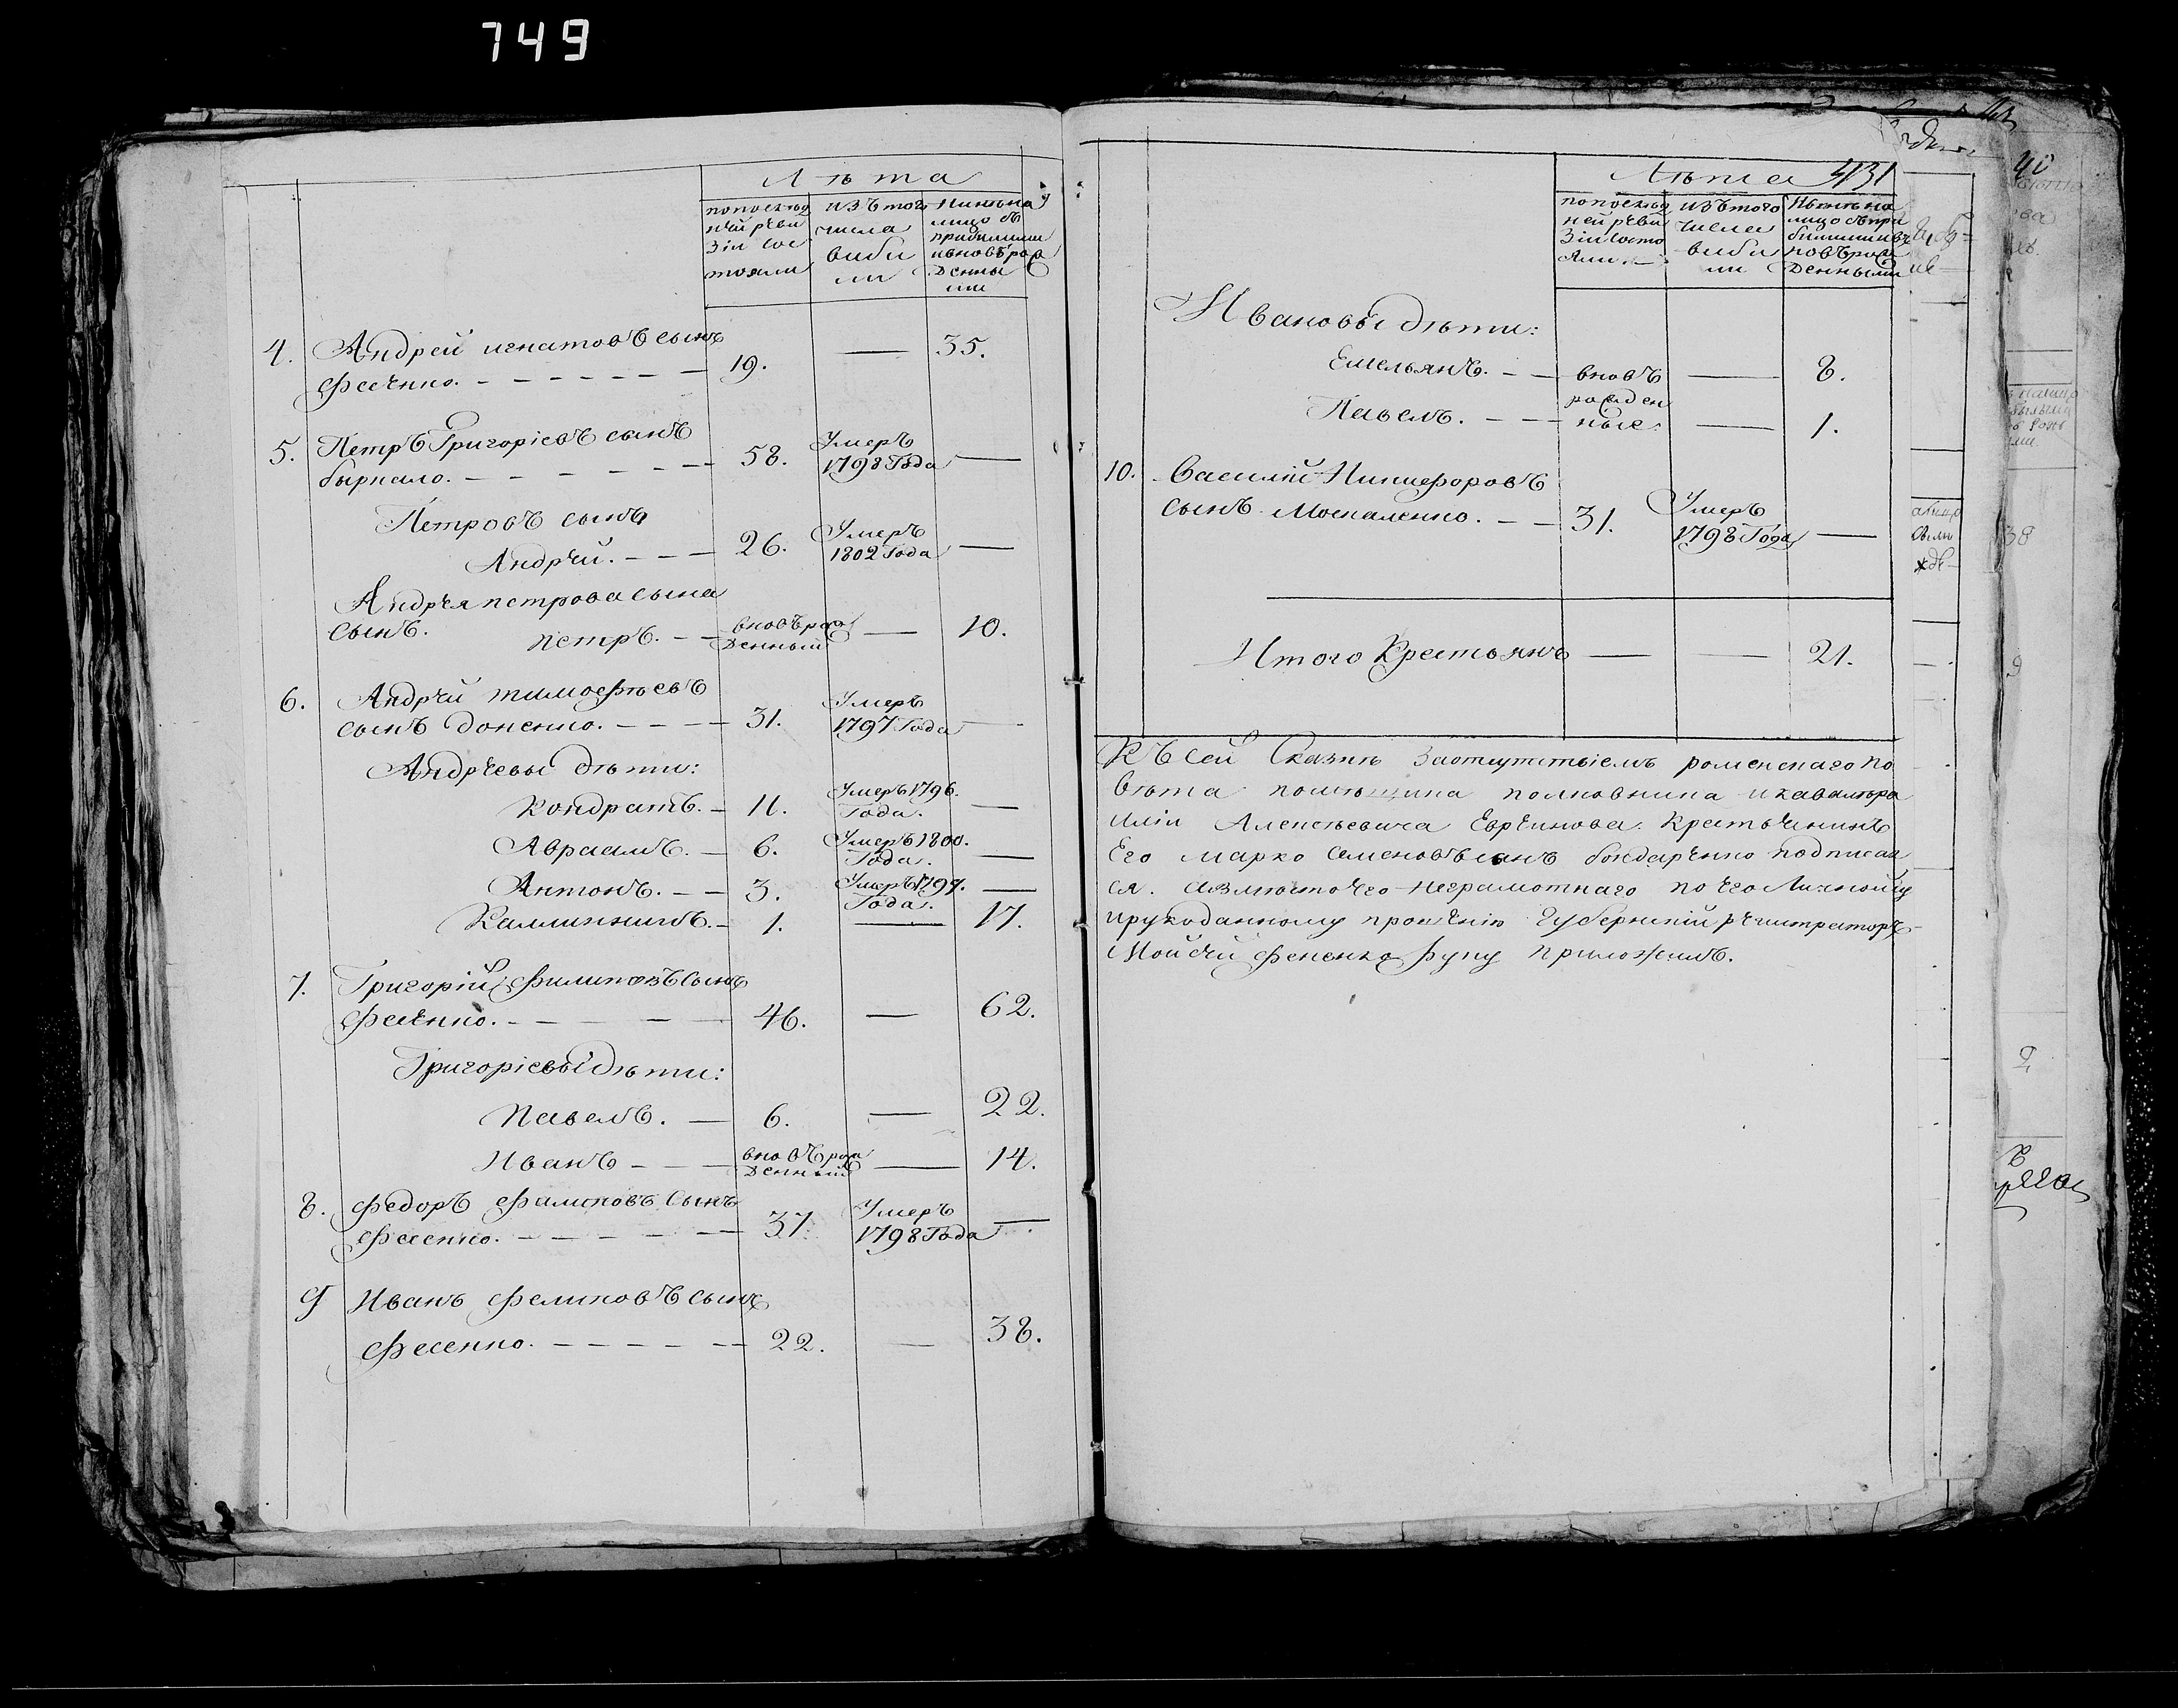 749
Лѣта
попослѣд изъ того Нынѣ на
ней реви числа лицо съ
зіи сос выбы прибылыми
тояли ли ивновь рож
денны
ми
4. Андрей игнатовъ сынъ
Фесенко. 19. — 35.
5. Петръ Григорієвъ сынъ
быркало. 58. Умеръ 1798 Года —
Петровъ сынъ
Андрей. 26. Умеръ 1802 Года —
Андрея петрова сына
сынъ. петръ. вновь рож денный — 10.
6. Андрей тимофѣевъ
сынъ доненко. 31. Умеръ 1797 Года —
Андреевы дѣти:
Кондратъ. 11. Умеръ 1796. Года. —
Авраамъ. 6. Умеръ 1800. Года. —
Антонъ. 3. Умеръ 1797. Года. —
Каллиникъ. 1. — 17.
7. Григорій Филиповъ Сынъ
Фесенко. 46. — 62.
Григорієвы дѣти:
Павелъ. 6. — 22.
Иванъ вновь рож денный — 14.
8. Федоръ Филиповъ Сынъ
Фесенко. 37. Умеръ 1798 Года —
9 Иванъ Филиповъ сынъ
Фесенко. 22. — 38.
Лѣта 431
попослѣд изъ того Нынѣ на
ней реви числа лицо съ при
зіи состо выбы былыми ив
яли. ли новь рож
денными
Ивановы дѣти:
Емельянъ. вновь — 8.
рожден
Павелъ. ные. — 1.
10. Василій Никифоровъ
сынъ Москаленко. 31. Умеръ 1798 Года —
Итого Крестьянъ — — 21.
Къ сей Сказкѣ заотсутствіемъ роменскаго по
вѣта помѣщика полковника икавалера
Иліи Алексѣевича Евреинова. Крестьянинъ
Его марко Семеновъ сынъ бондаренко подписал
ся. авмѣсто его неграмотнаго по его Личному
ирукоданному прошенію Губернскій регистраторъ
Мойсей Фененко руку приложилъ.